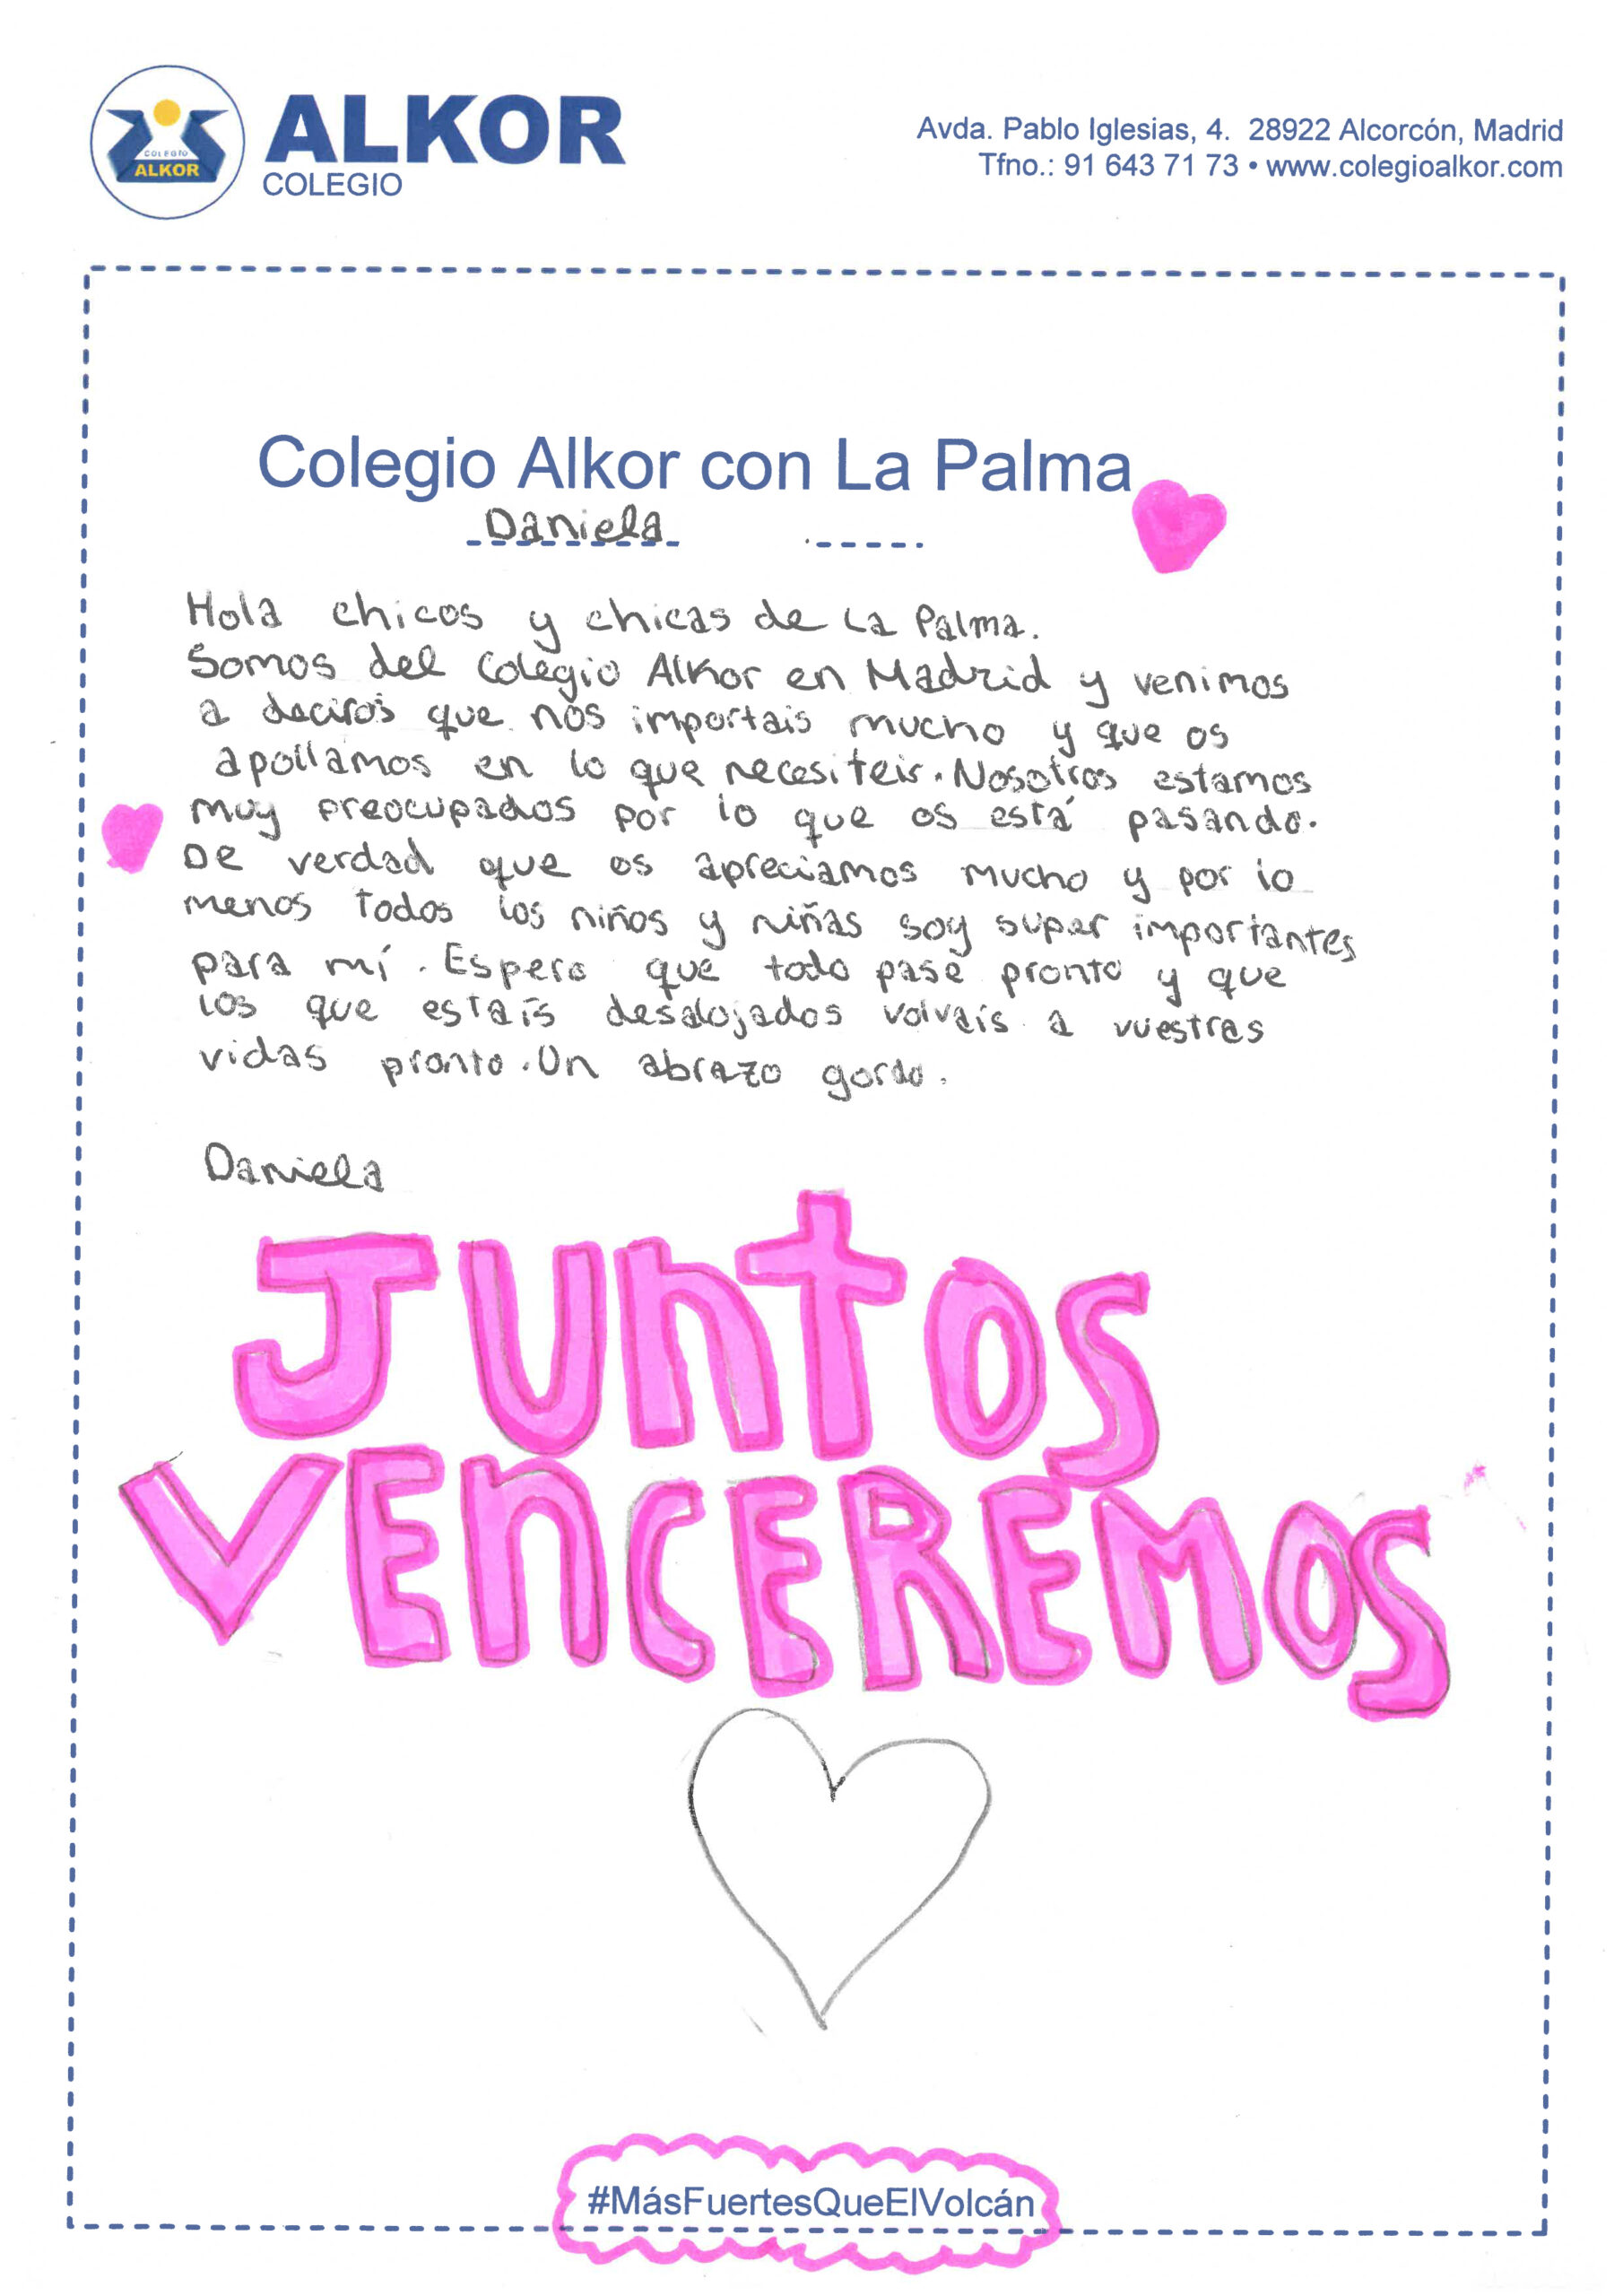 COLEGIO
ALKOR
ALKOR
COLEGIO
Avda. Pablo Iglesias, 4. 28922 Alcorcón, Madrid
Tfno.: 91 643 71 73 • www.colegioalkor.com
Colegio Alkor con La Palma
Daniela
Hola chicos y chicas de La Palma.
Somos del Colegio Alkor en Madrid y venimos
a deciros que nos importais mucho y que os
apollamos en lo que necesiteir. Nosotros estamos
muy preocupados por lo que os está pasando.
De verdad que os apreciamos mucho y por lo
menos todos los niños y niñas soy super importantes
para mí. Espero que todo pase pronto y que
los que estaís desalojados volvaís a vuestras
vidas pronto. Un abrazo gordo.
Daniela
JUntOS
VEnCEREMOS
#MásFuertesQueElVolcán